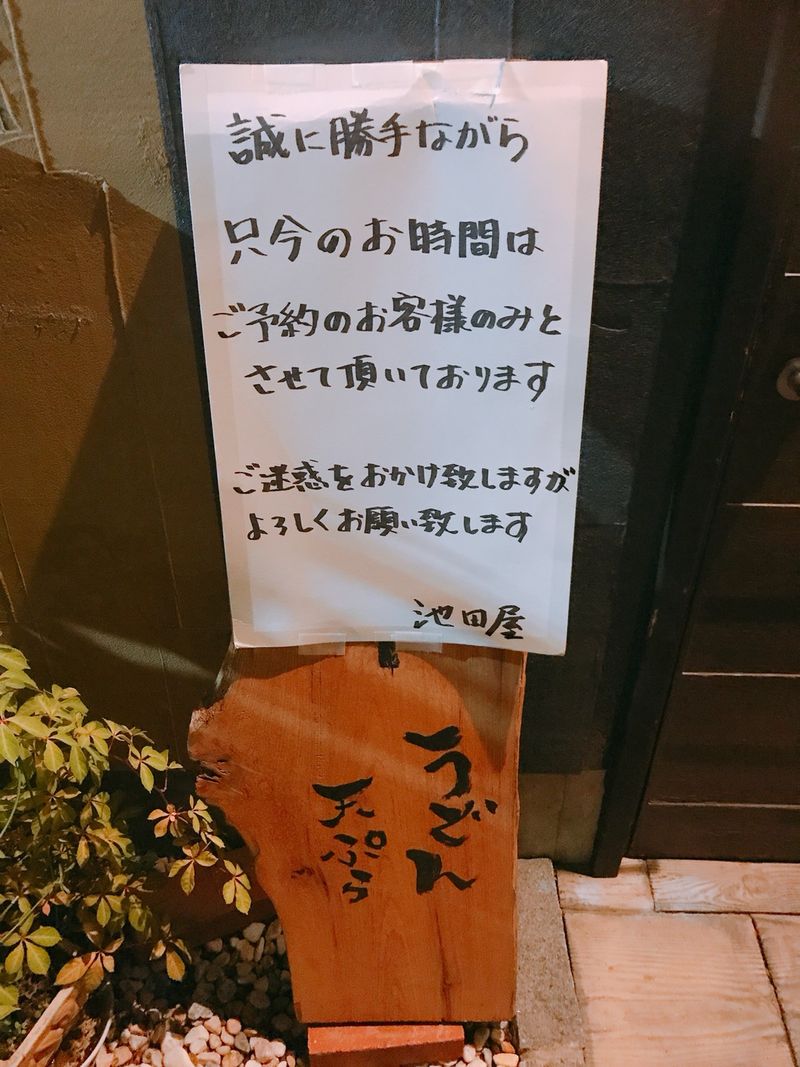 誠に勝手ながら
只今のお時間は
ご予約のお客様のみと
させて頂いております
ご迷惑をおかけ致しますが
よろしくお願い致します
池田屋
うどん
天ぷら